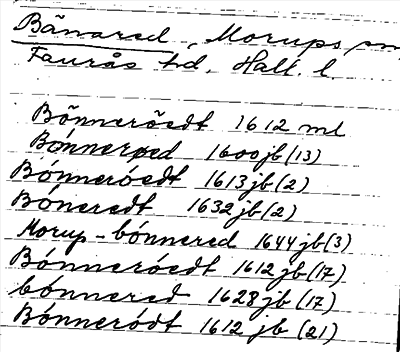 Bänared, Morups sn
Faurås hd, Hall. l.
Bönneröedt 1612 ml
Bónnerped 1600 jb (13)
Bónneróedt 1613 jb (2)
Bóneredt 1632 jb (2)
Morup-bónnered 1644 jb (3)
Bónneróedt 1612 jb (17)
bónnered 1628 jb (17)
Bónneródt 1612 jb (21)